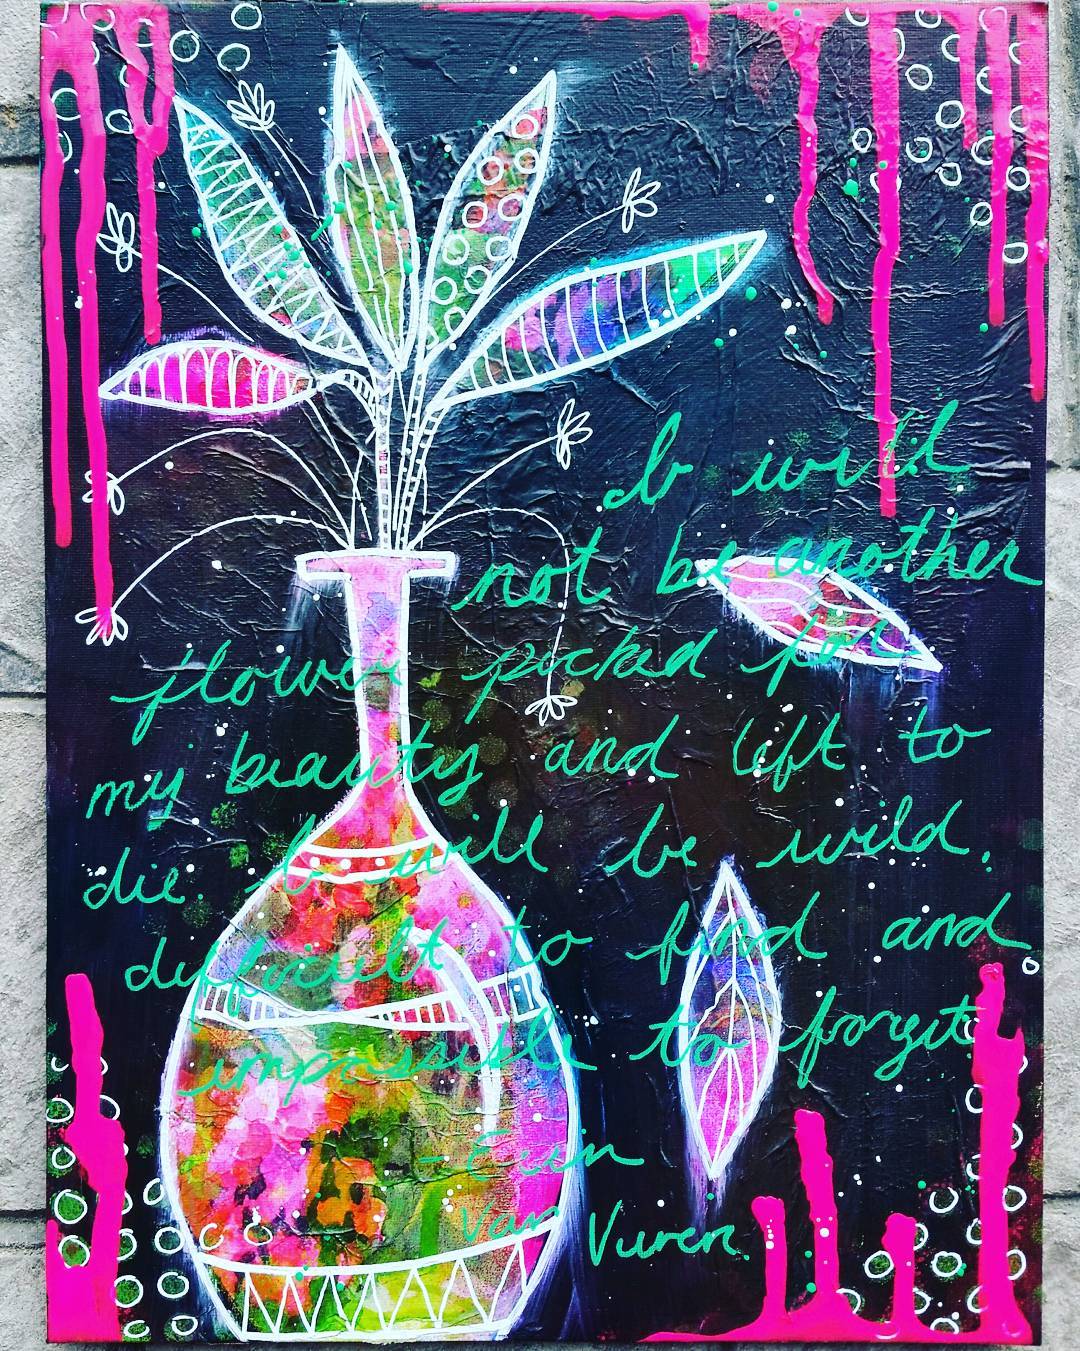 I will
not be another
flower picked for
my beauty and left to
die. I will be wild,
difficult to find and
impossible to forget
- Erin
Van Vuren.